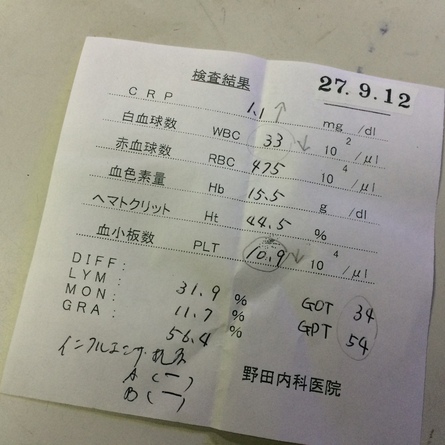 検査結果 27.9.12
CRP 1.1 ↑ mg /dl
白血球数 WBC 33 ↓ 10² /μl
赤血球数 RBC 475 10⁴ /μl
血色素量 Hb 15.5 g /dl
ヘマトクリット Ht 44.5 %
血小板数 PLT 10.9 ↓ 10⁴ /μl
DIFF:
LYM: 31.9 %
MON: 11.7 % GOT 34
GRA: 56.4 % GPT 54
インフルエンザ
A (ー)
B (ー)
野田内科医院